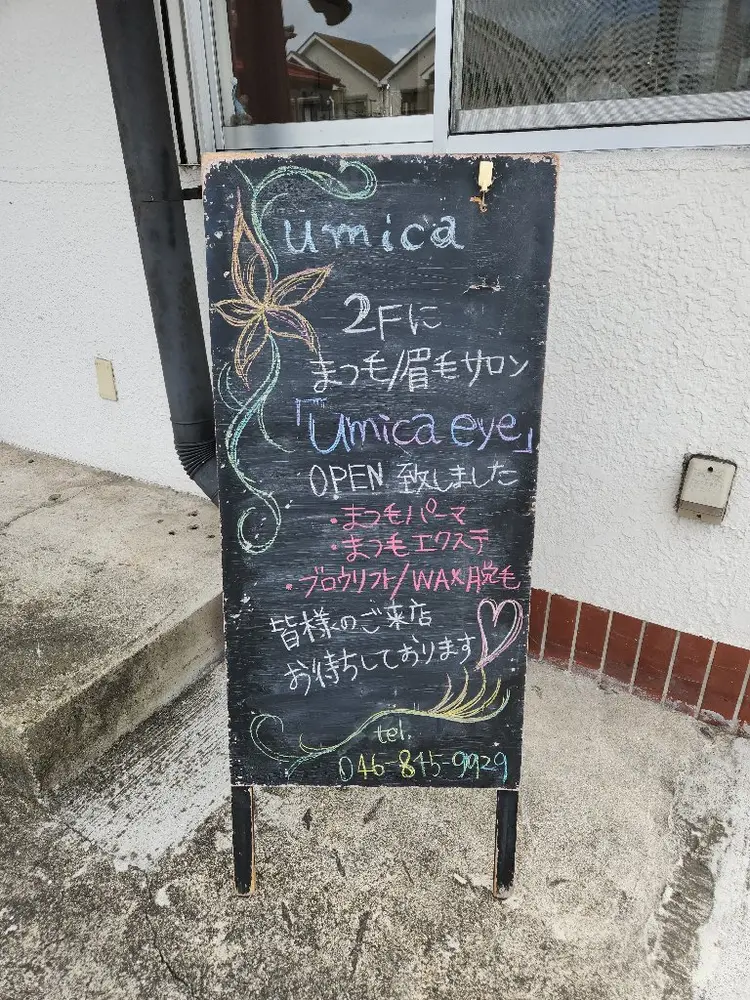 umica
2Fに
まつ毛/眉毛サロン
「Umica eye」
OPEN 致しました
・まつ毛パーマ
・まつ毛エクステ
・ブロウリフト/WAX脱毛
皆様のご来店
お待ちしております
tel.
046-845-9929